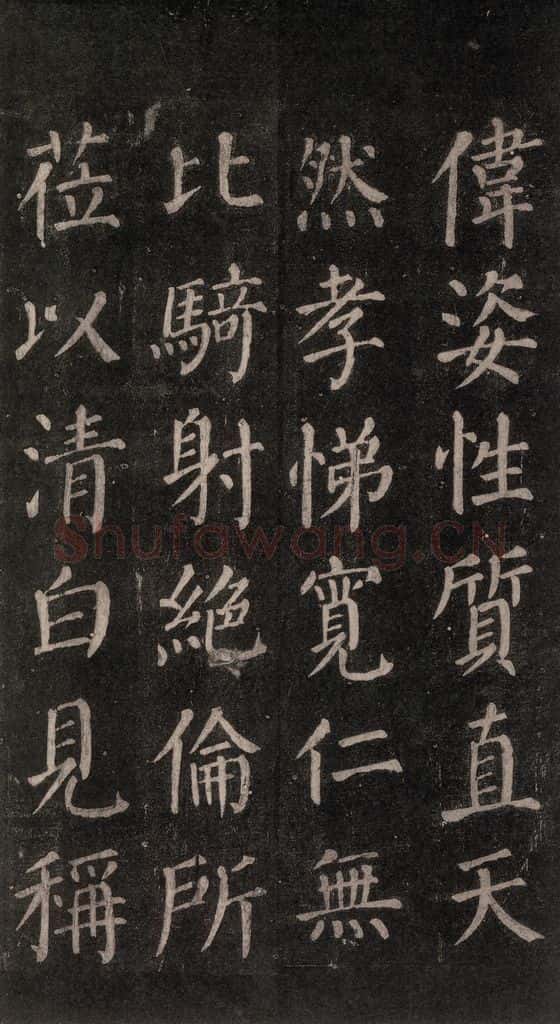 偉姿性質直天
然孝悌寛仁無
比騎射絶倫所
莅以清白見稱
Shufawang.CN